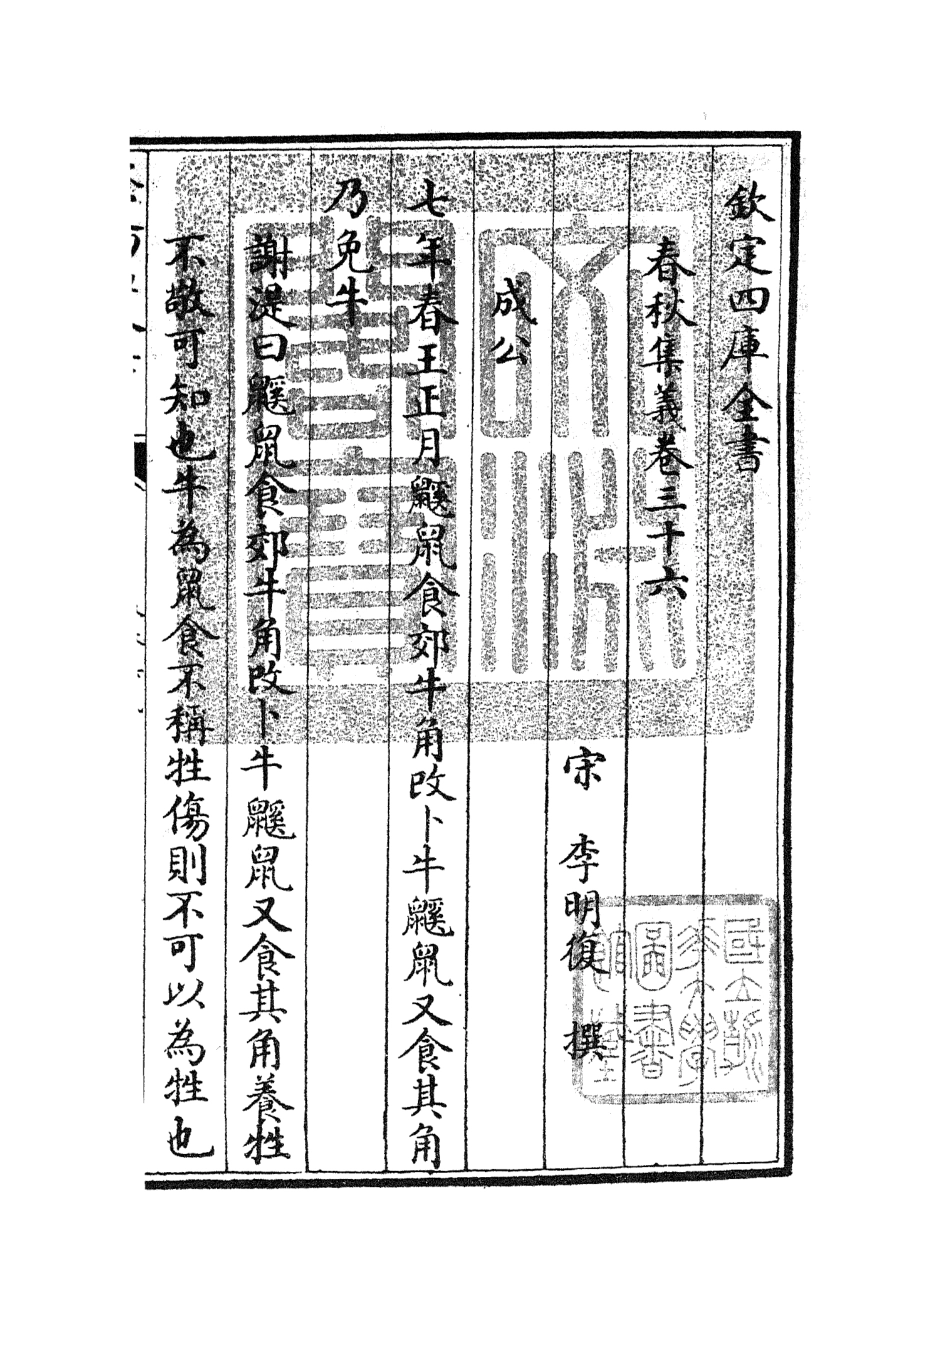 欽定四庫全書
春秋集義卷三十六
宋　李明復　撰
成公
七年春王正月鼷鼠食郊牛角改卜牛鼷鼠又食其角
乃免牛
謝湜曰鼷鼠食郊牛角改卜牛鼷鼠又食其角養牲
不敬可知也牛為鼠食不稱牲傷則不可以為牲也